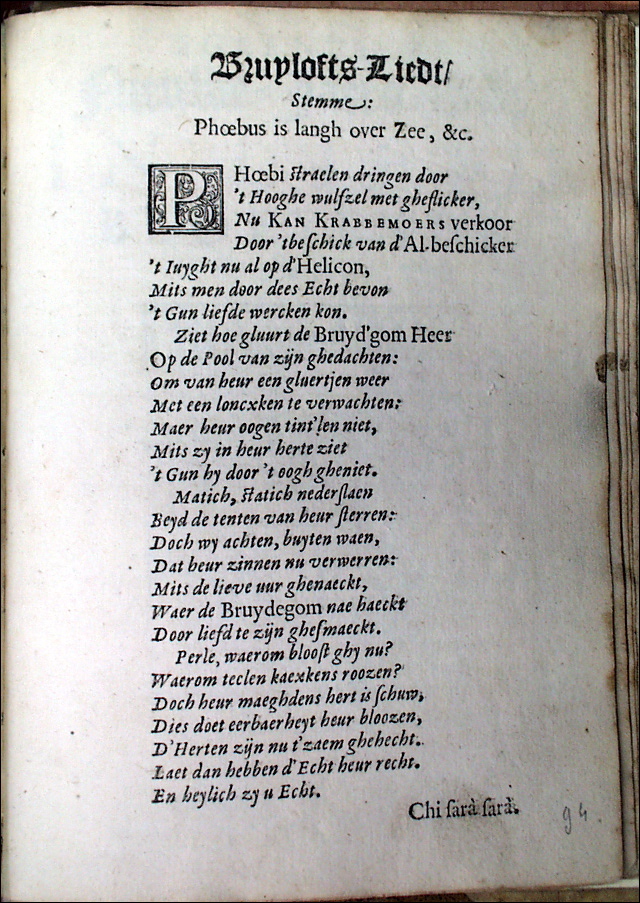 Bruylofts-Liedt/
Stemme:
Phœbus is langh over Zee, &c.
PHœbi straelen dringen door
't Hooghe wulfzel met gheflicker,
Nu KAN KRABBEMOERS verkoor
Door 'tbeſchick van d'Al-beſchicker
't Iuyght nu al op d'Helicon,
Mits men door dees Echt bevon
't Gun liefde wercken kon.
Ziet hoe gluurt de Bruyd'gom Heer
Op de Pool van zijn ghedachten:
Om van heur een gluertjen weer
Met een loncxken te verwachten:
Maer heur oogen tint'len niet,
Mits zy in heur herte ziet
't Gun hy door 't oogh gheniet.
Matich, ſtatich nederſlaen
Beyd de tenten van heur ſterren:
Doch wy achten, buyten waen,
Dat heur zinnen nu verwerren:
Mits de lieve uur ghenaeckt,
Waer de Bruydegom nae haeckt
Door liefd te zijn gheſmaeckt.
Perle, waerom blooſt ghy nu?
Waerom teelen kaexkens roozen?
Doch heur maeghdens hert is ſchuw,
Dies doet eerbaerheyt heur bloozen,
D'Herten zijn nu t'zaem ghehecht.
Laet dan hebben d'Echt heur recht.
En heylich zy u Echt.
Chi ſarà ſarà.
94.